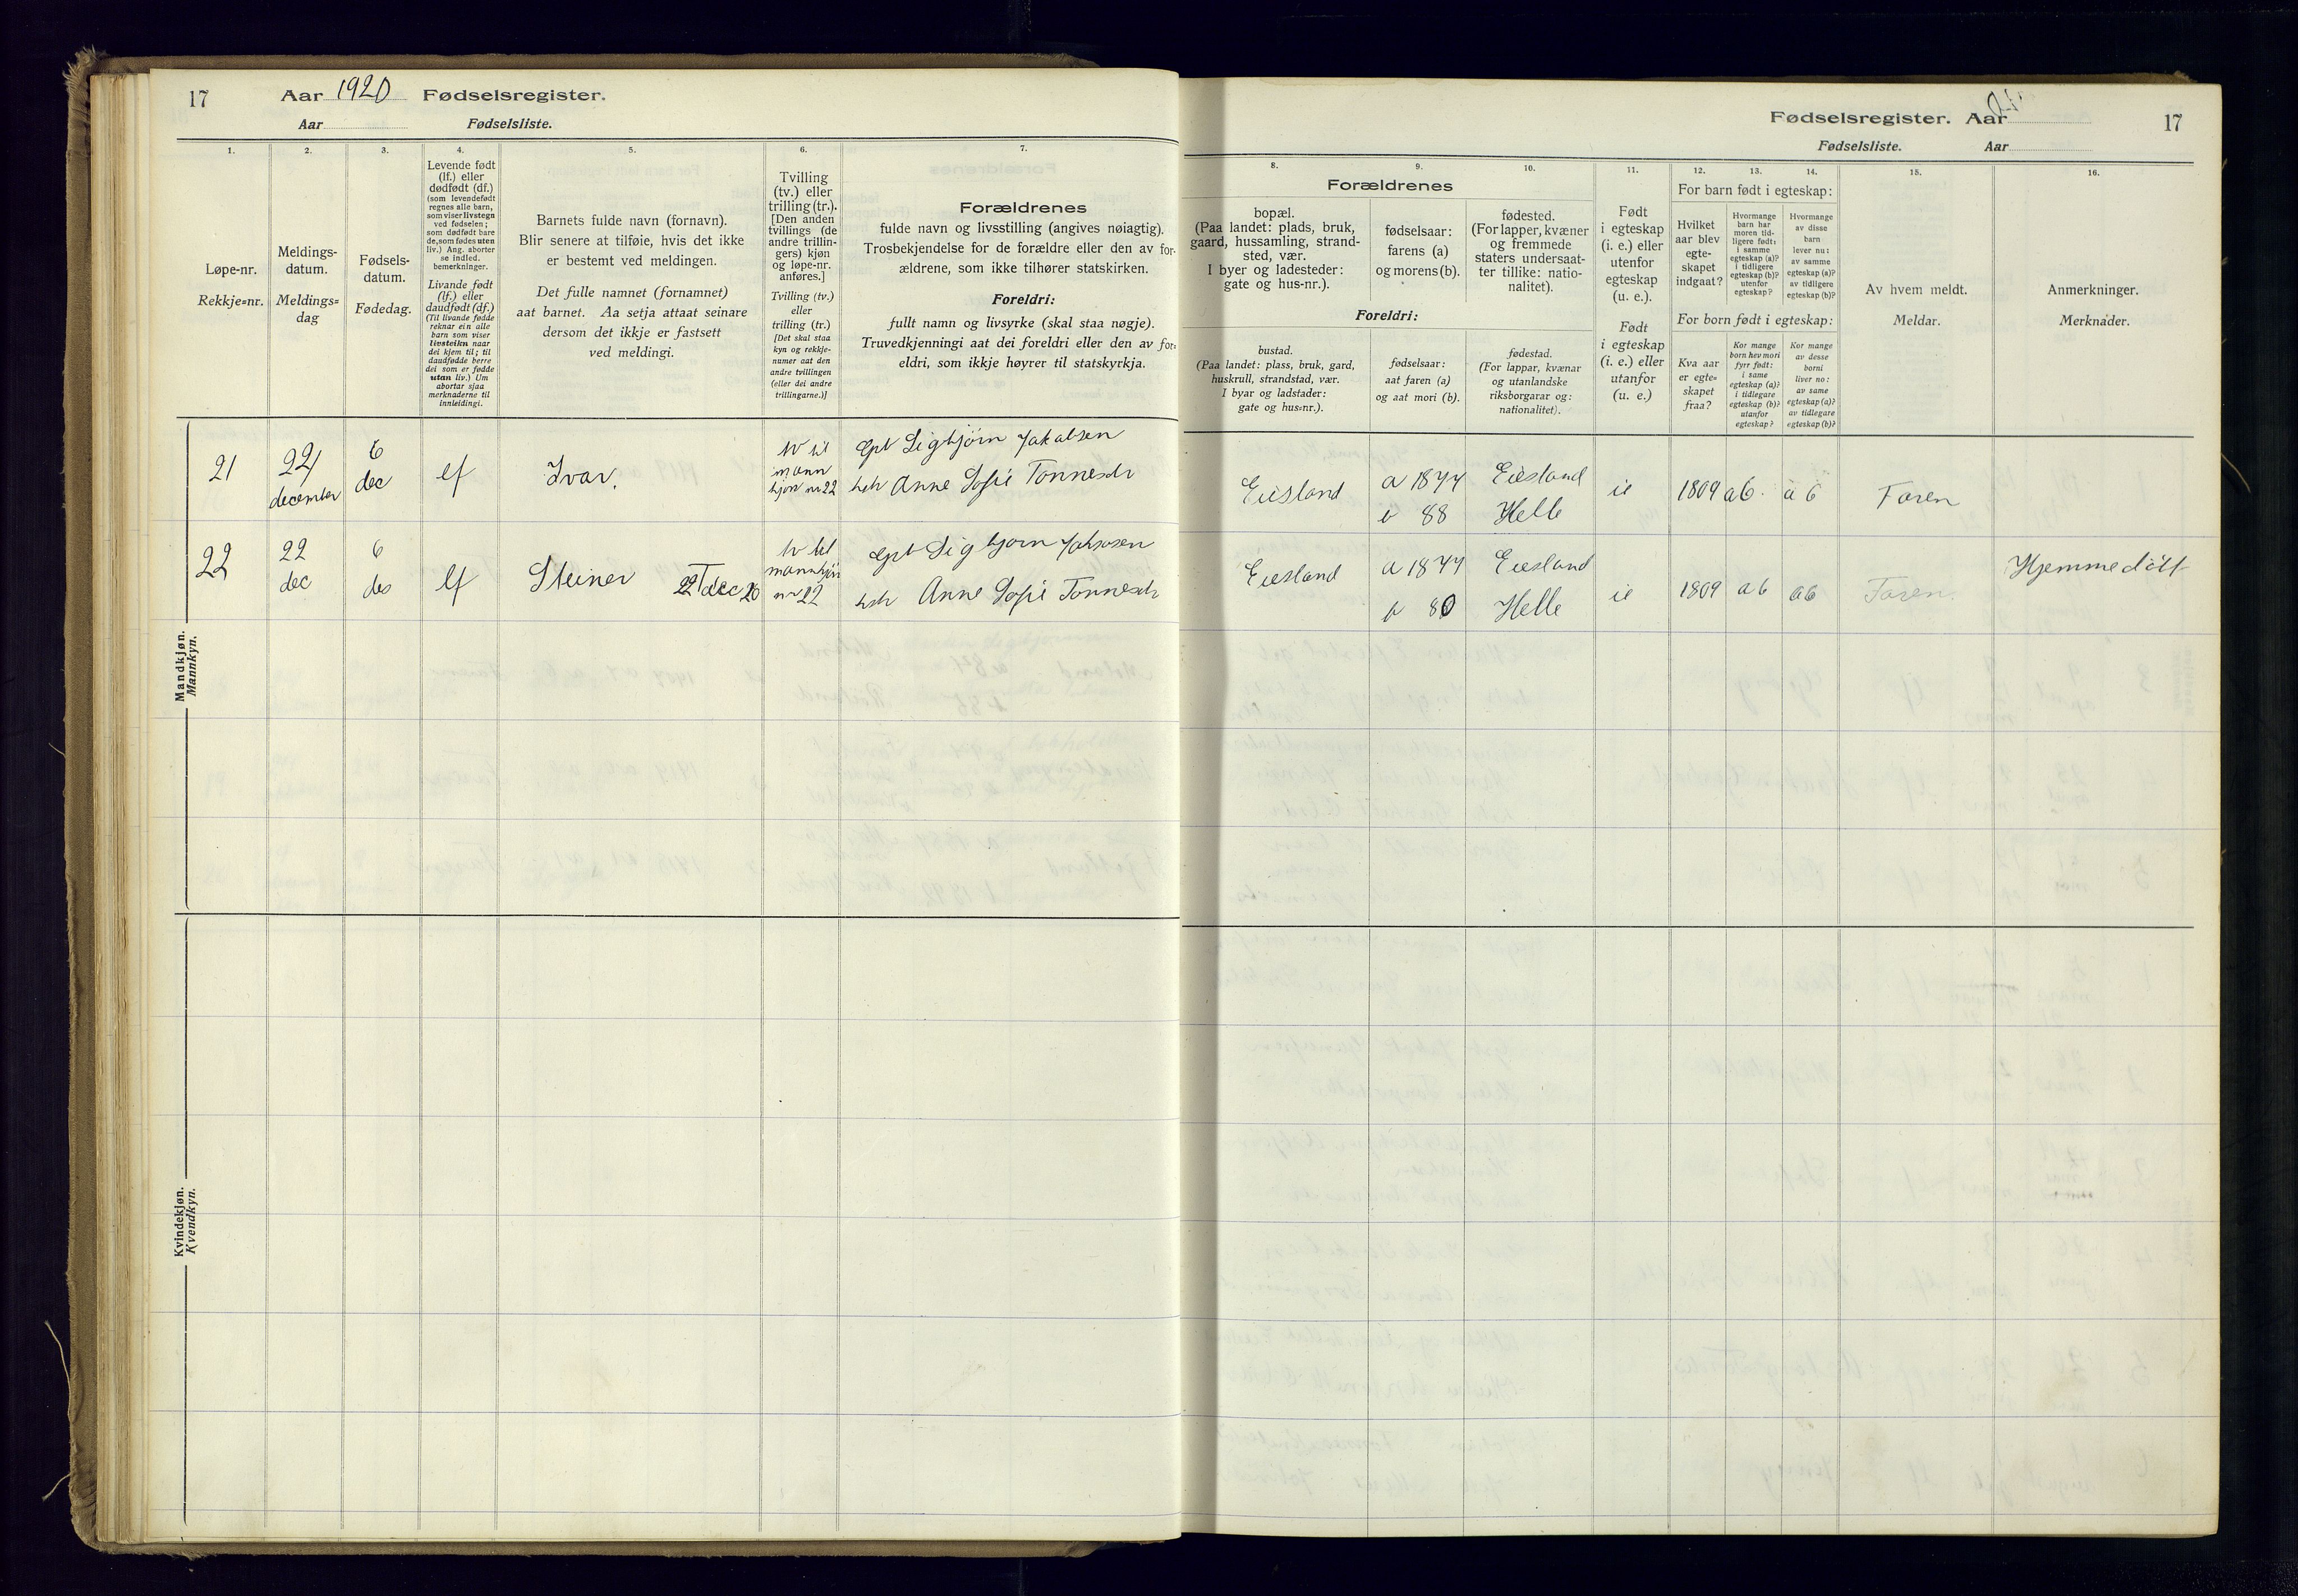 17 Aar 1920 Fødselsregister.
Aar Fødselsliste.
Fødselsregister. Aar
Fødselsliste. Aar
17
1.
Løpe-nr.
Rekkje=nr.
2.
Meldings-
datum.
Meldings=
dag
3.
Fødsels-
datum.
Fødedag.
4.
Levende født
(lf.) eller
dødfødt (df.)
(som levendefødt
regnes alle barn,
som viser livstegn
ved fødselen;
som dødfødt bare
de, som fødes uten
liv.) Ang. aborter
se indled.
bemerkninger.
Livande født
(lf.) eller
daudfødt (df.)
(Til livande fødde
reknar ein alle
barn som viser
livsteikn naar
dei kjem til; til
daudfødde berre
dei som er fødde
utan liv.) Um
abortar sjaa
merknaderne til
innleidingi.
5.
Barnets fulde navn (fornavn).
Blir senere at tilføie, hvis det ikke
er bestemt ved meldingen.
Det fulle namnet (fornamnet)
aat barnet. Aa setja attaat seinare
dersom det ikkje er fastsett
ved meldingi.
6.
Tvilling
(tv.) eller
trilling (tr.).
[Den anden
tvillings (de
andre trillin-
gers) kjøn
og løpe-nr.
anføres.]
Tvilling (tv.)
eller
trilling (tr.)
[Det skal staa
kyn og rekkje-
numer aat den
andre tvillingen
(eller dei andre
trillingarne.)]
7.
Forældrenes
fulde navn og livsstilling (angives nøiagtig).
Trosbekjendelse for de forældre eller den av for-
ældrene, som ikke tilhører statskirken.
Foreldri:
fullt namn og livsyrke (skal staa nøgje).
Truvedkjenningi aat dei foreldri eller den av for=
eldri, som ikkje høyrer til statskyrkja.
8.
9.
10.
Forældrenes
bopæl.
(Paa landet: plads, bruk,
gaard, hussamling, strand-
sted, vær.
I byer og ladesteder:
gate og hus-nr.).
fødselsaar:
farens (a)
og morens (b).
fødested.
(For lapper, kvæner
og fremmede
staters undersaat-
ter tillike: natio-
nalitet).
Foreldri:
bustad.
(Paa landet: plass, bruk, gard,
huskrull, strandstad, vær.
I byar og ladstader:
gate og hus=nr.).
fødselsaar:
aat faren (a)
og aat mori (b).
fødestad.
(For lappar, kvænar
og utanlandske
riksborgarar og:
nationalitet).
11.
Født
i egteskap
(i. e.) eller
utenfor
egteskap
(u. e.).
Født
i egteskap
(i. e.) eller
utanfor
(u. e.)
12.
13.
14.
For barn født i egteskap:
Hvilket
aar blev
egte-
skapet
indgaat?
Hvormange
barn har
moren tid-
ligere født:
i samme
egteskap (a)?
i tidligere
egteskap (b)?
utenfor
egteskap?
Hvormange
av disse
barn
lever nu:
av samme
egteskap (a)?
av tidligere
egteskap (b)?
For born født i egteskap:
Kva aar
er egte=
skapet
fraa?
Kor mange
born hev mori
fyrr født:
i same
egteskap (a)?
i tidlegare
egteskap (b)?
utanfor
egteskap?
Kor mange
av desse
borni
liver no:
av same
egteskap (a)?
av tidlegare
egteskap (b)?
15.
Av hvem meldt.
Meldar.
16.
Anmerkninger.
Merknader.
Mandkjøn.
Mannkyn.
21
22/
december
6
dec
lf
Ivar.
tv til
mann
kjøn nr 22
Gpt Sigbjørn Jakobsen
hstr Anne Sofie Tønnesdtr
Eiesland
a 1877
b 88
Eiesland
Helle
ie
1809
a6
a 6
Faren
22
22
dec
6
dec
lf
Steiner
tv til
mannkjøn
nr 22
Gpt Sigbjørn Jakobsen
hstr Anne Sofie Tønnesdtr
Eiesland
a 1877
b 80
Eiesland
Helle
ie
1809
a 6
a6
Faren.
Hjemmedøbt
Kvindekjøn.
Kvendkyn.